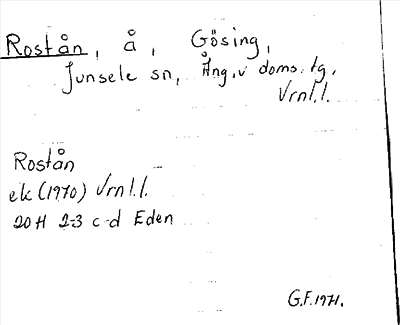 Rostån, å, Gösing,
Junsele sn, Ång.v doms.tg,
Vrnl.l.
Rostån
ek (1970) Vrnl.l.
20 H 2-3 c-d Eden
G.F. 1971.